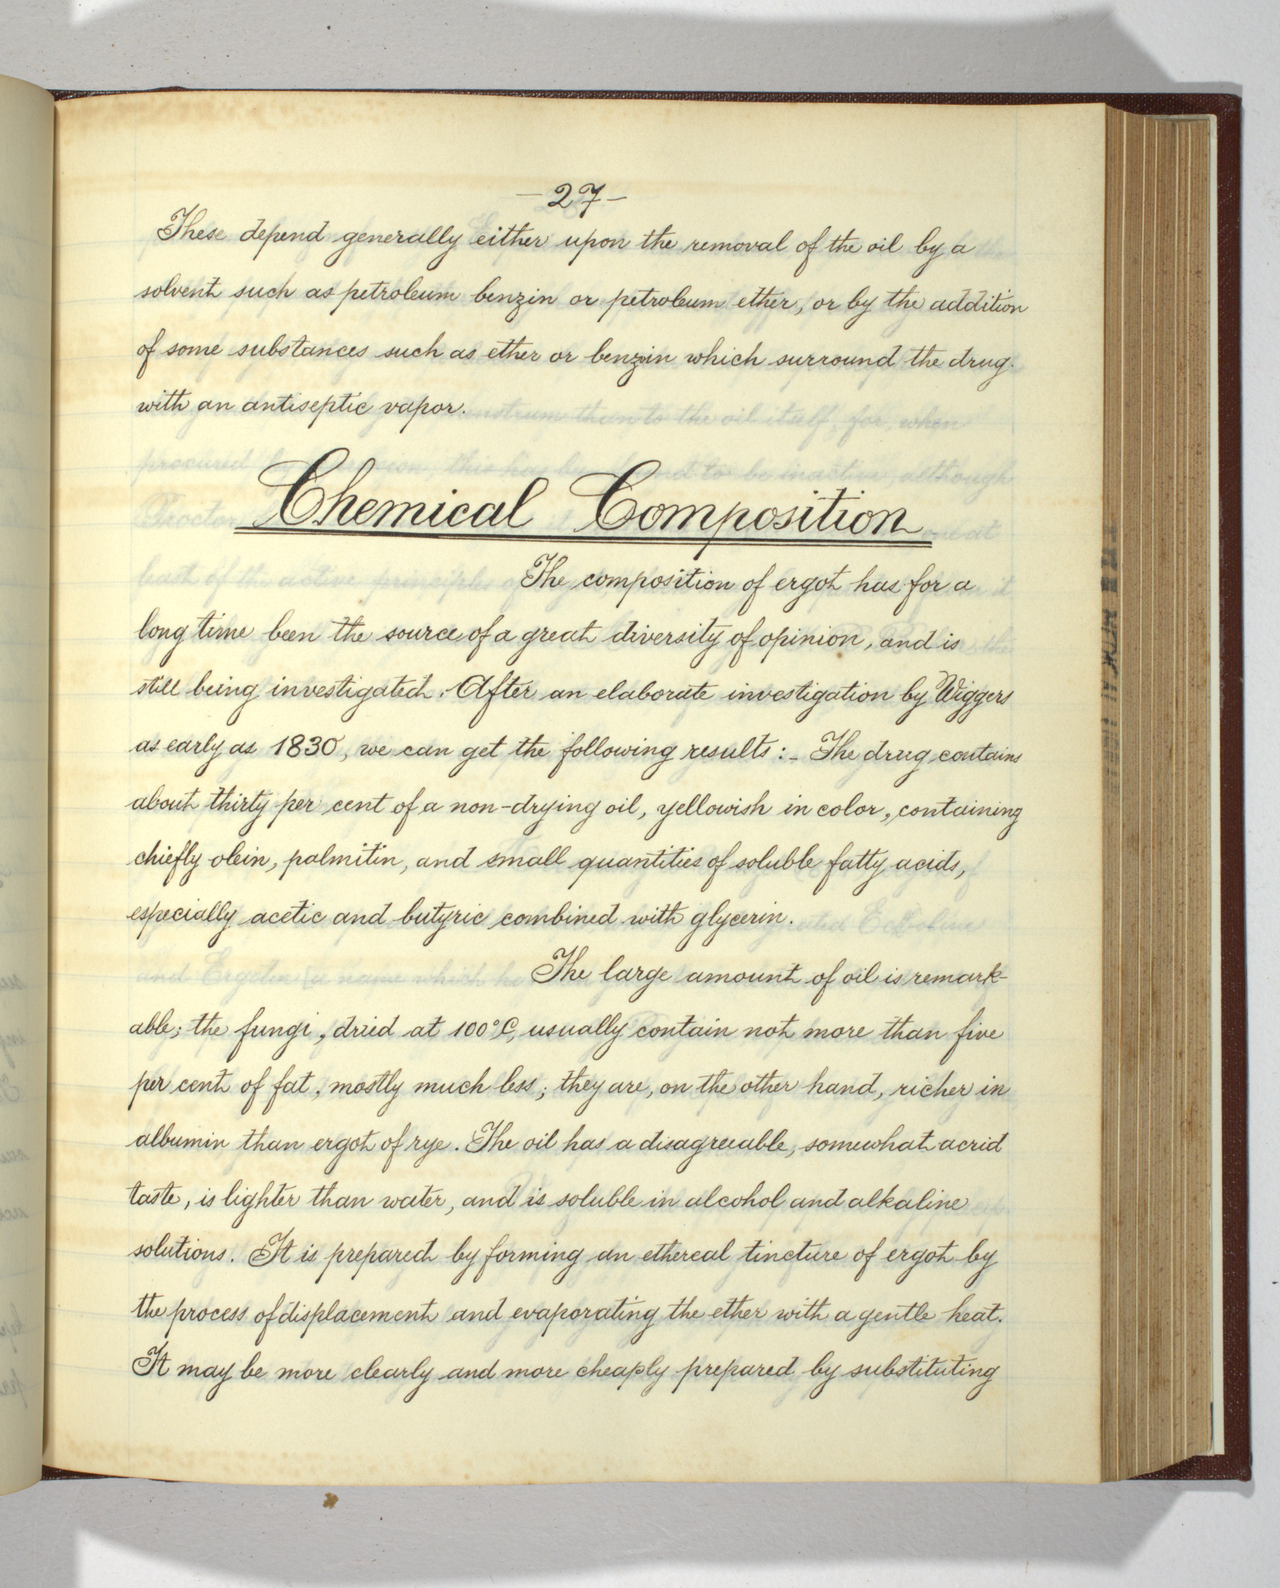 —27—
These depend generally either upon the removal of the oil by a
solvent such as petroleum benzin or petroleum ether, or by the addition
of some substances such as ether or benzin which surround the drug
with an antiseptic vapor.
Chemical Composition
The composition of ergot has for a
long time been the source of a great diversity of opinion, and is
still being investigated. After an elaborate investigation by Wiggers
as early as 1830, we can get the following results:- The drug contains
about thirty per cent of a non-drying oil, yellowish in color, containing
chiefly olein, palmitin, and small quantities of soluble fatty acids,
especially acetic and butyric combined with glycerin.
The large amount of oil is remark-
able; the fungi, dried at 100°C, usually contain not more than five
per cent of fat, mostly much less; they are, on the other hand, richer in
albumin than ergot of rye. The oil has a disagreeable, somewhat acrid
taste, is lighter than water, and is soluble in alcohol and alkaline
solutions. It is prepared by forming an ethereal tincture of ergot by
the process of displacement and evaporating the ether with a gentle heat.
It may be more clearly and more cheaply prepared by substituting